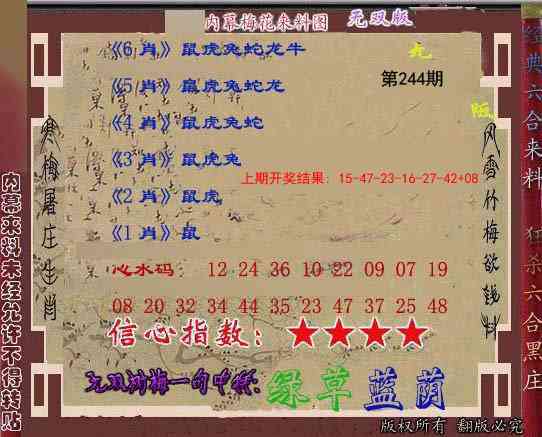 内幕梅花来料图 无双版
《6 肖》鼠虎兔蛇龙牛
《5 肖》鼠虎兔蛇龙
《4 肖》鼠虎兔蛇
《3 肖》鼠虎兔
《2 肖》鼠虎
《1 肖》鼠
第244期
上期开奖结果：15-47-23-16-27-42+08
心水码： 12 24 36 10 22 09 07 19
08 20 32 34 44 35 23 47 37 25 48
信心指数：★★★★
绿草蓝荫
寒梅屠庄生肖
风雪竹梅欲钱料
内幕来料未经允许不得转贴
经典六合来料
狂杀六合黑庄
版权所有 翻版必究